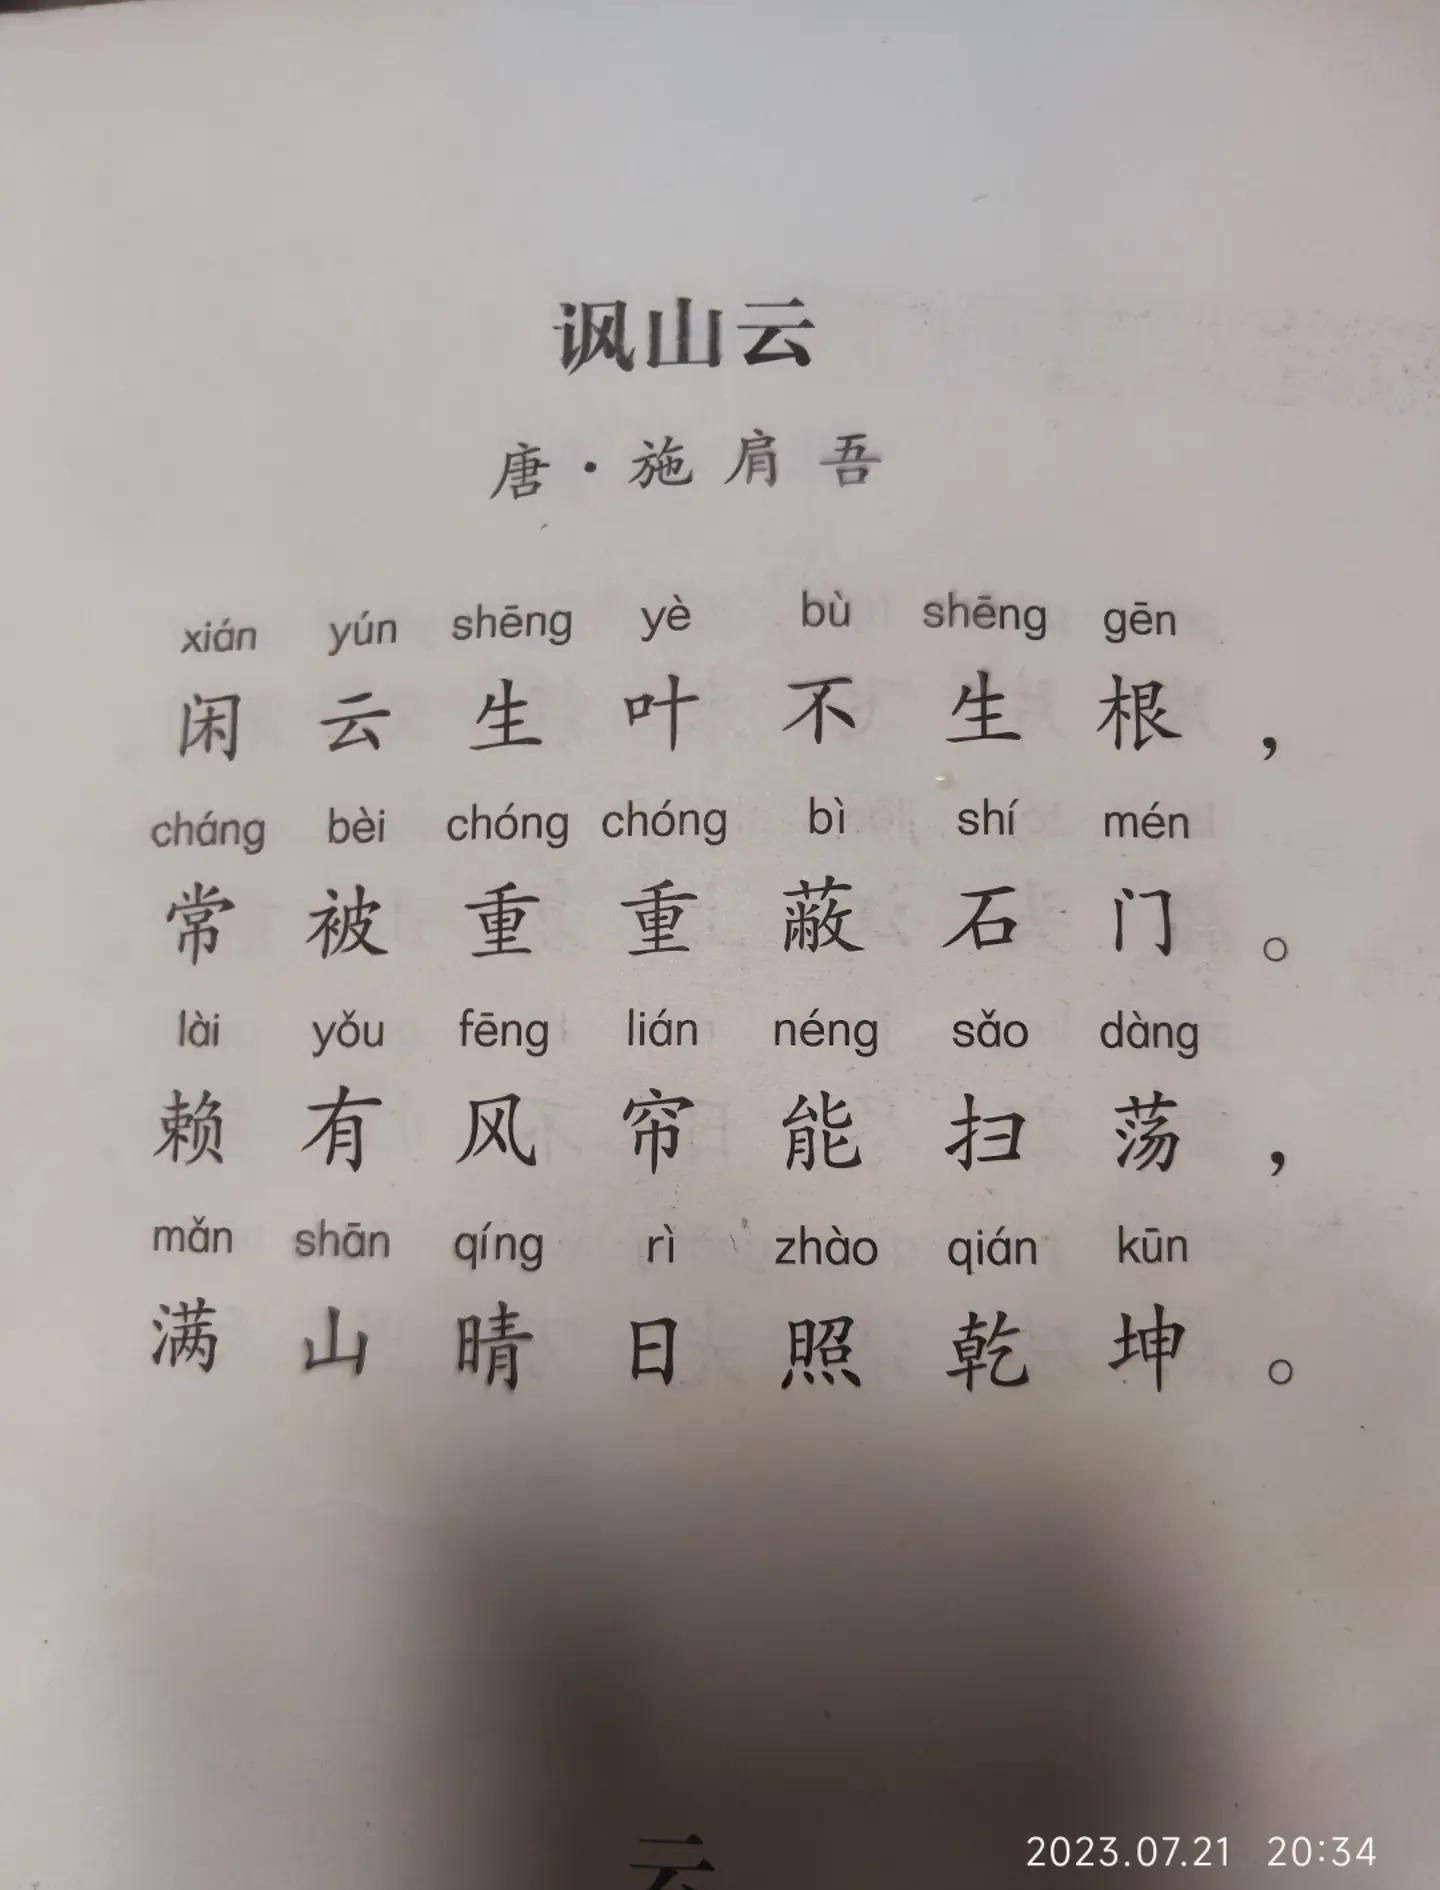 讽山云
唐·施肩吾
xián yún shēng yè bù shēng gēn
闲云生叶不生根，
cháng bèi chóng chóng bì shí mén
常被重重蔽石门。
lài yǒu fēng lián néng sǎo dàng
赖有风帘能扫荡，
mǎn shān qíng rì zhào qián kūn
满山晴日照乾坤。
云
2023.07.21 20:34